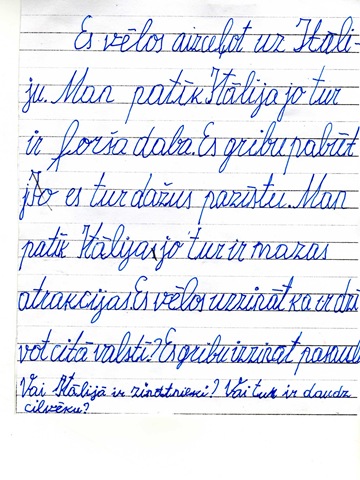 Es vēlos aizceļot uz Itāli-
ju. Man patīk Itālija jo tur
ir forša daba. Es gribu pabūt
jo es tur dažus pazīstu. Man
patīk Itālija jo tur ir mazas
atrakcijas. Es vēlos uzzināt kā ir dzī
vot citā valstī? Es gribu izzināt pasaul
Vai Itālijā ir zinātnieki? Vai tur ir daudz
cilvēku?